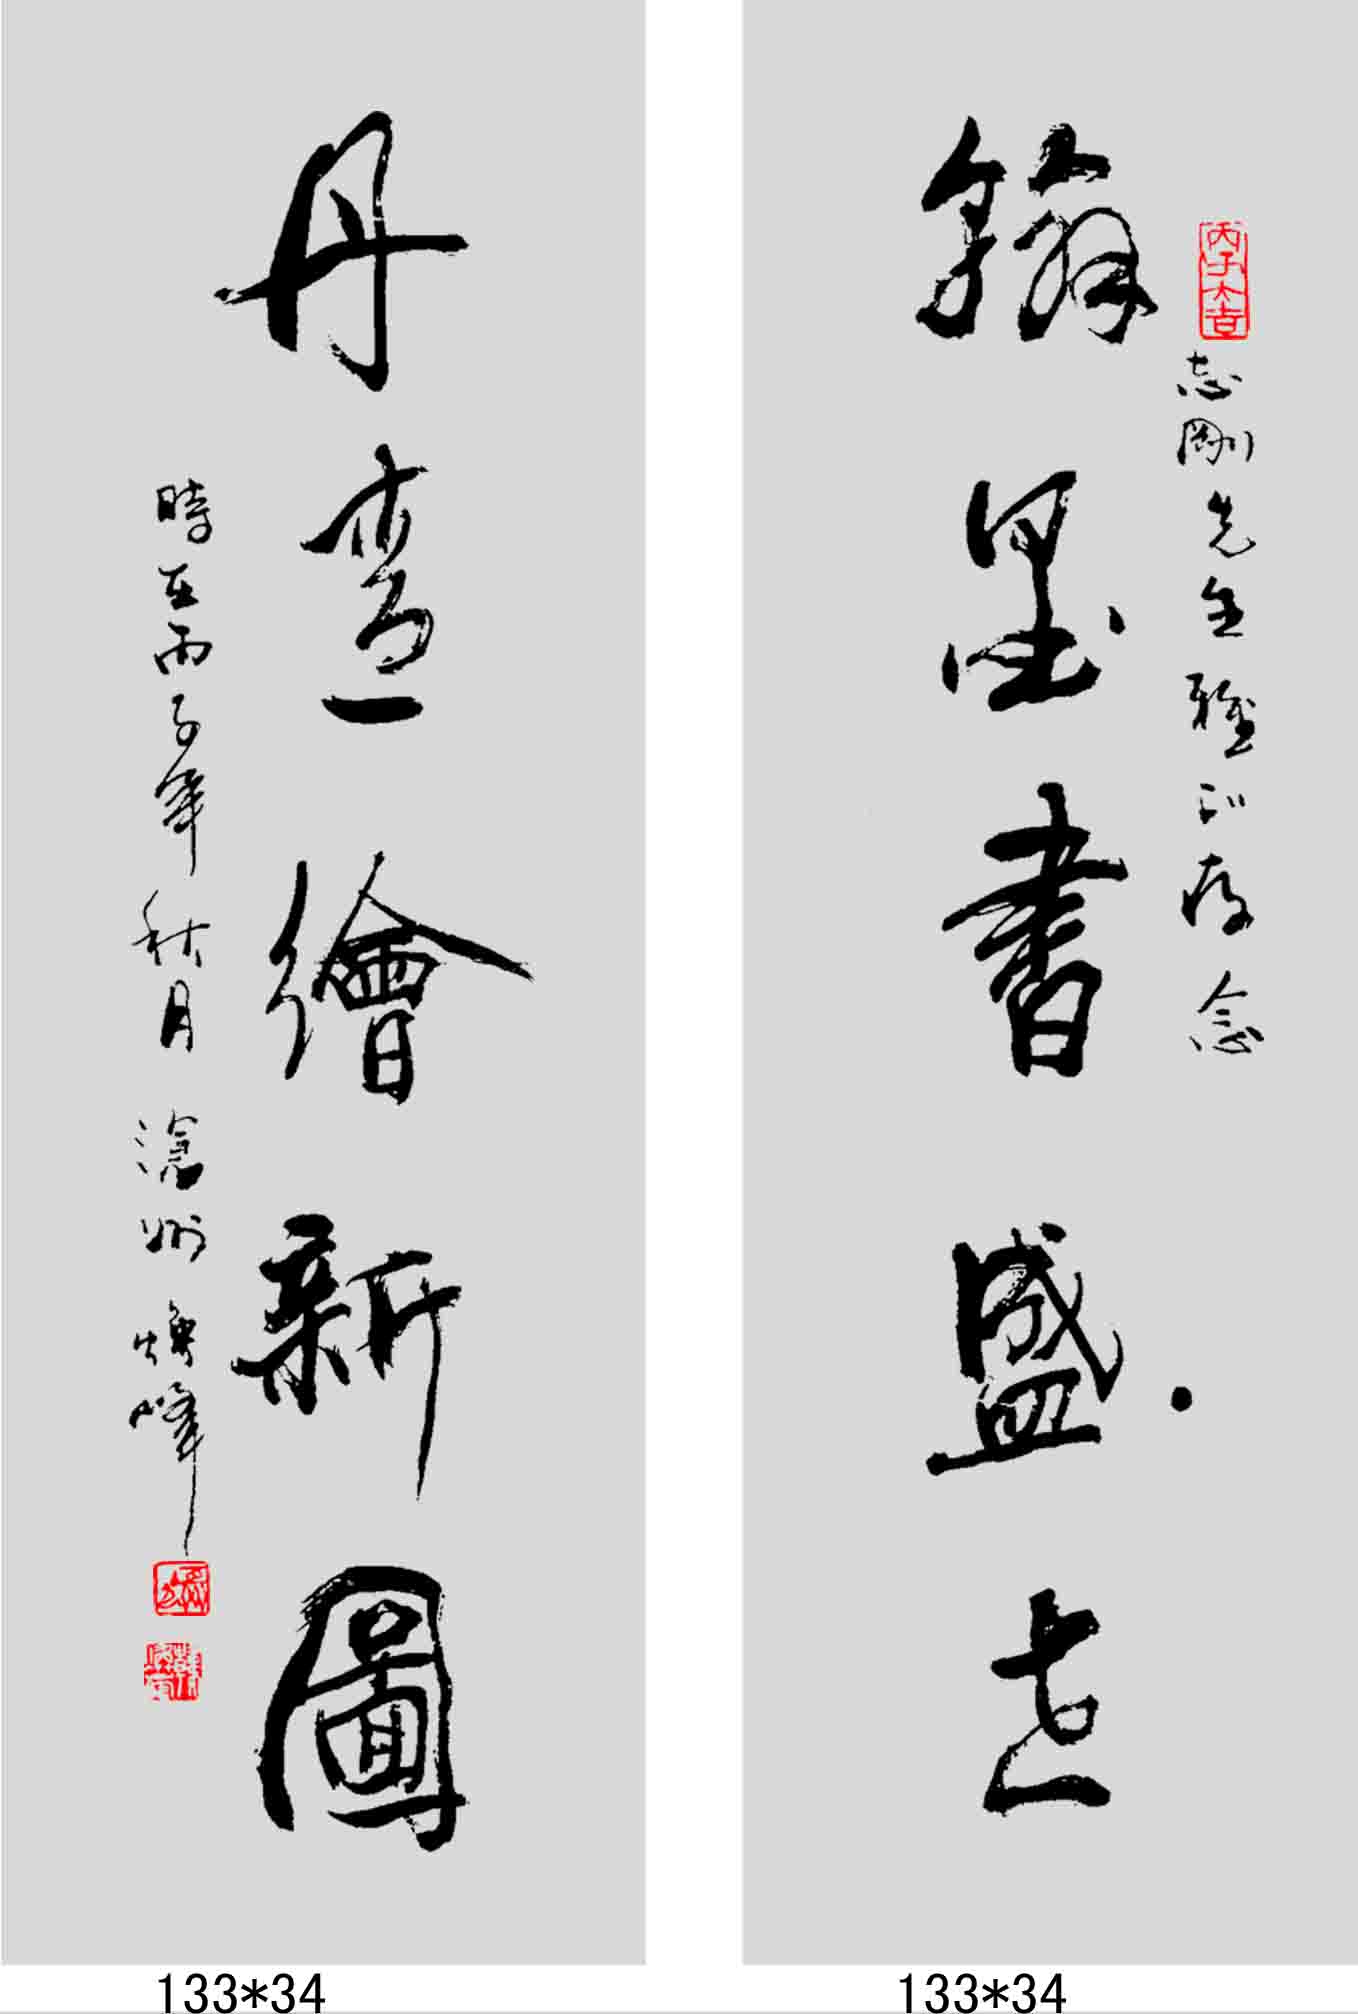 丙子大吉
志剛先生雅存念
翰墨書盛世
丹鸾繪新圖
時在丙子年秋月 滄州煥峰
133*34
133*34